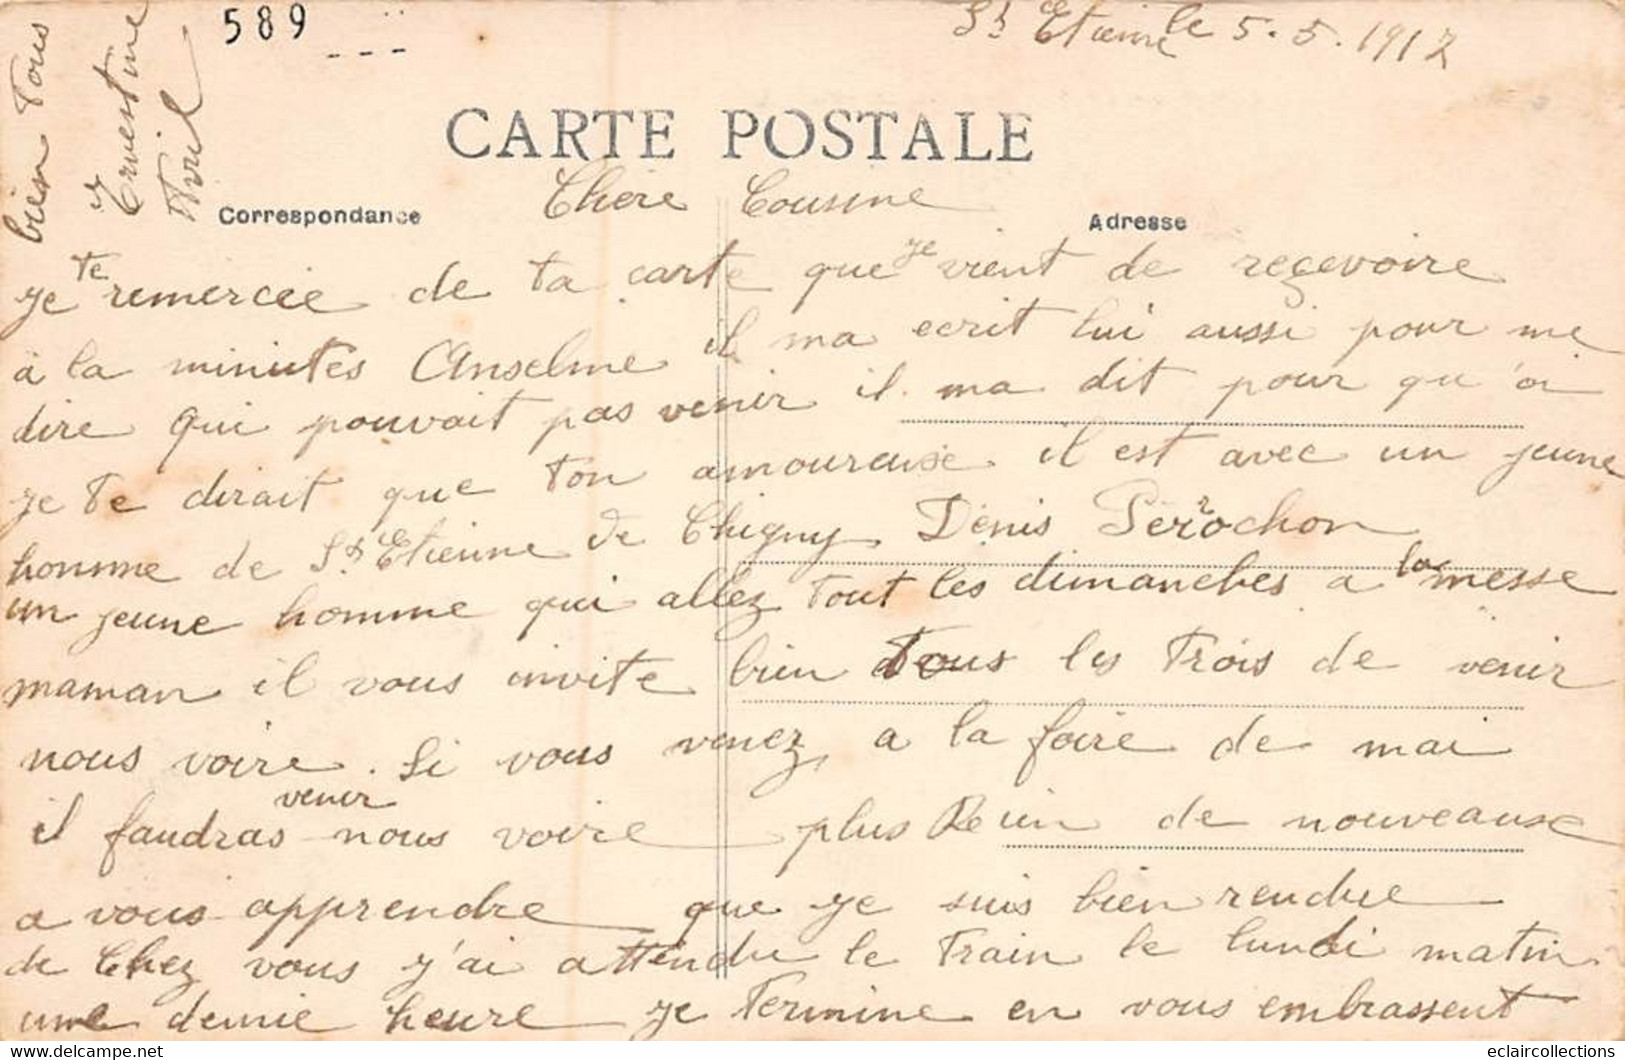 589
St Etienne le 5.5.1912
CARTE POSTALE
Correspondance
Adresse
Chere Cousine
je te remercie de ta carte que je vient de reçevoire
a la minutes Anselme il ma ecrit lui aussi pour me
dire qui pouvait pas venir il ma dit pour qu'oi
je te dirait que ton amoureuse il est avec un jeune
homme de St Etienne de Chigny Denis Perrochon
un jeune homme qui allez tout les dimanches a la messe
maman il vous invite bien tous les trois de venir
nous voire. Si vous venez a la foire de mai
il faudras venir nous voire plus Reien de nouveause
a vous apprendre que je suis bien rendue
de Chez vous j'ai attendu le train le lundi matin
une demie heure je termine en vous embrassent
bien tous
Ernestine
Avril
eclaircollections